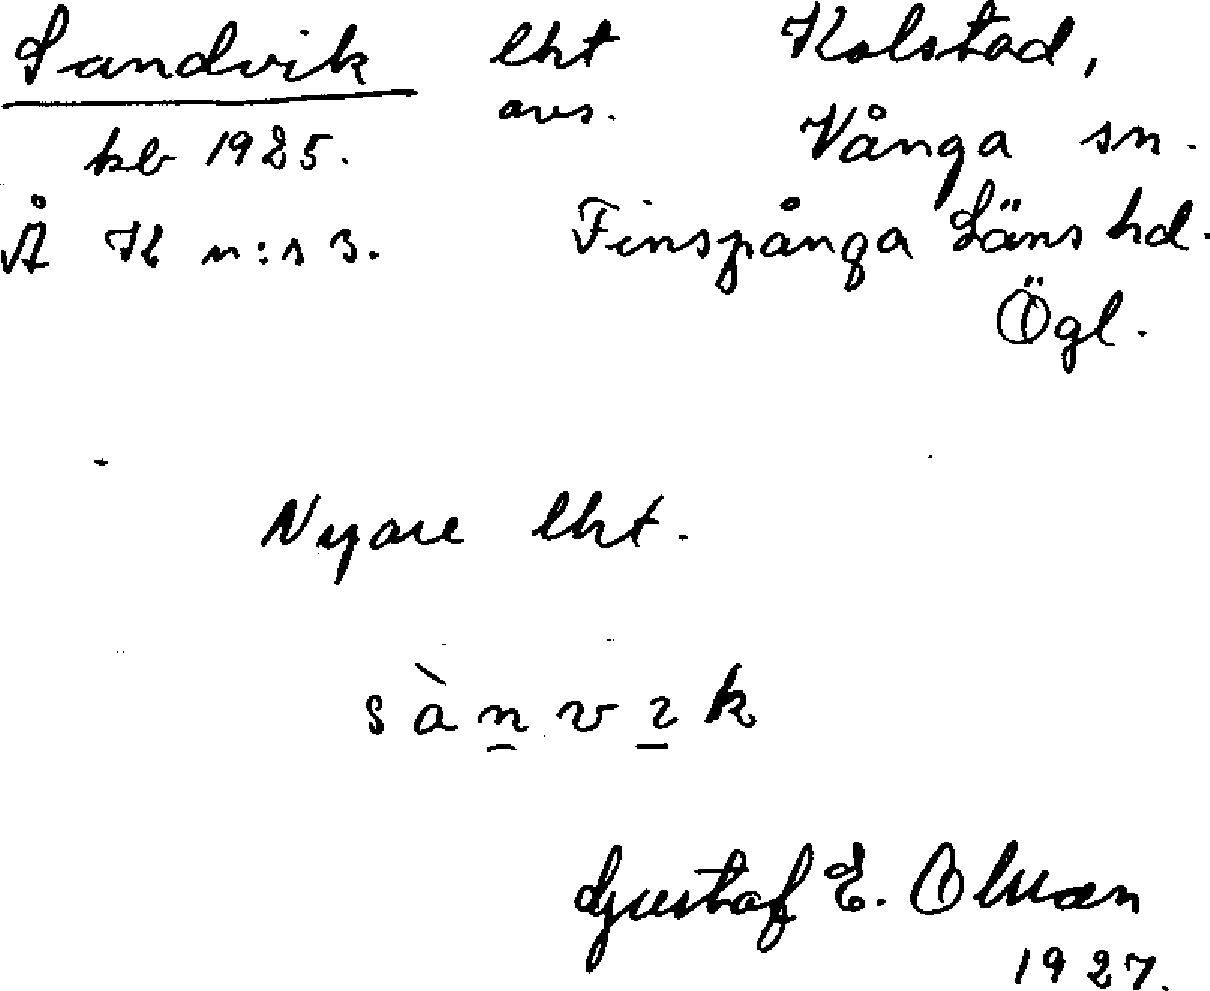 Sandvik lht Kolstad,
avs.
kb 1925. Vånga sn.
Å K n:s 3. Finspånga Läns hd.
Ögl.
Nyare lht.
sànvık
Gustaf E. Olsson
1927.